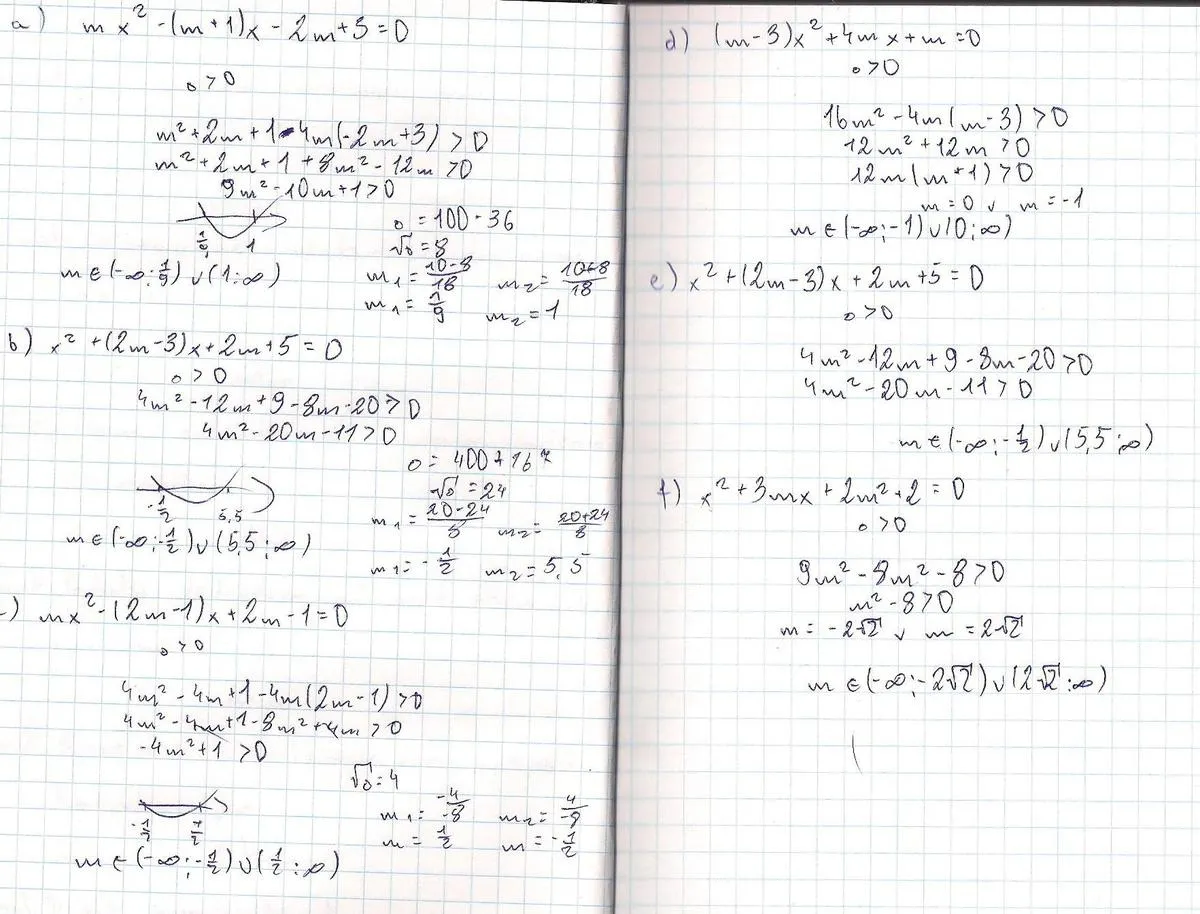 a) mx² -(m+1)x - 2m+3 = 0
△ > 0
m²+2m+1-4m(-2m+3) > 0
m²+2m+1+8m²-12m > 0
9m²-10m+1 > 0
△ = 100-36
√△ = 8
1/9 1
m ∈ (-∞; 1/9) ∪ (1; ∞)
m₁ = (10-8)/18 m₂ = (10+8)/18
m₁ = 1/9 m₂ = 1
b) x² +(2m-3)x+2m+5 = 0
△ > 0
4m²-12m+9-8m-20 > 0
4m²-20m-11 > 0
△ = 400+167
√△ = 24
-1/2 5,5
m₁ = (20-24)/8 m₂ = (20+24)/8
m ∈ (-∞; -1/2) ∪ (5,5; ∞)
m₁ = -1/2 m₂ = 5,5
) mx² -(2m-1)x+2m-1 = 0
△ > 0
4m²-4m+1-4m(2m-1) > 0
4m²-4m+1-8m²+4m > 0
-4m²+1 > 0
√△ = 4
m₁ = -4/-8 m₂ = 4/-8
-1/2 1/2
m = 1/2 m = -1/2
m ∈ (-∞; -1/2) ∪ (1/2; ∞)
d) (m-3)x²+4mx+m = 0
△ > 0
16m²-4m(m-3) > 0
12m²+12m > 0
12m(m+1) > 0
m = 0 ∨ m = -1
m ∈ (-∞; -1) ∪ (0; ∞)
e) x²+(2m-3)x+2m+5 = 0
△ > 0
4m²-12m+9-8m-20 > 0
4m²-20m-11 > 0
m ∈ (-∞; -1/2) ∪ (5,5; ∞)
f) x²+3mx+2m²+2 = 0
△ > 0
9m²-8m²-8 > 0
m²-8 > 0
m = -2√2 ∨ m = 2√2
m ∈ (-∞; -2√2) ∪ (2√2; ∞)